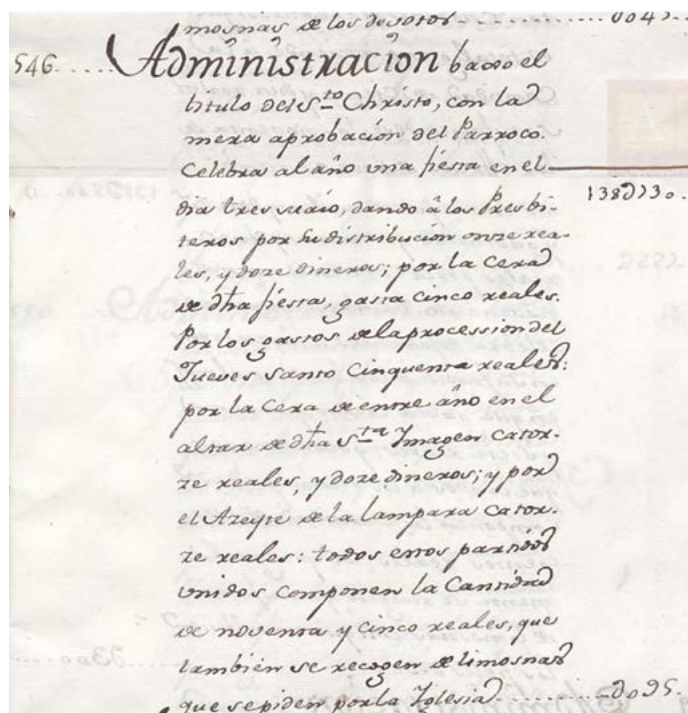 mosnas de los devotos ........... 0045.
546.....Administracion baxo el
titulo del S.to Christo, con la
mera aprobacion del Parroco.
Celebra al año una fiesta en el
dia tres maio, dando â los Presbi- 138∂130.
teros por su distribucion onze rea-
les, y doze dineros; por la Cera
de dha fiesta, gasta cinco reales.
Por los gastos de la procession del
Jueves santo Cinquenta reales:
por la Cera de entre año en el
altar de dha S.ta Ymagen cator-
ze reales, y doze dineros; y por
el Azeyte de la lampara cator-
ze reales: todos estos partidos
unidos componen la Cantidad
de noventa y cinco reales, que
tambien se recogen de limosnas
que se piden por la Yglesia ............∂095.